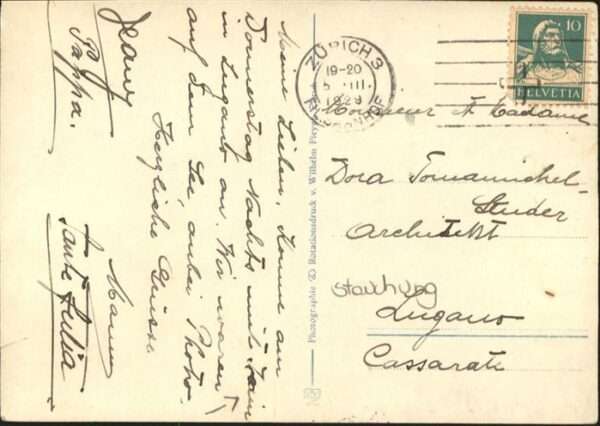 Meine Lieben, Komme am
Donnerstag Nachts mit Fam
in Lugano an. Wir waren
auf dem See, anbei Photo.
Herzliche Grüsse
Mamma
Jeany
Pappa.
Tante Julia
Phototographie Rotationsdruck v. Wilhelm
ZÜRICH 3
19-20
III.
1929
10
HELVETIA
Monsieur et Madame
Dora Tomamichel-
Studer
Architekt
Stauchung
Lugano
Cassarate